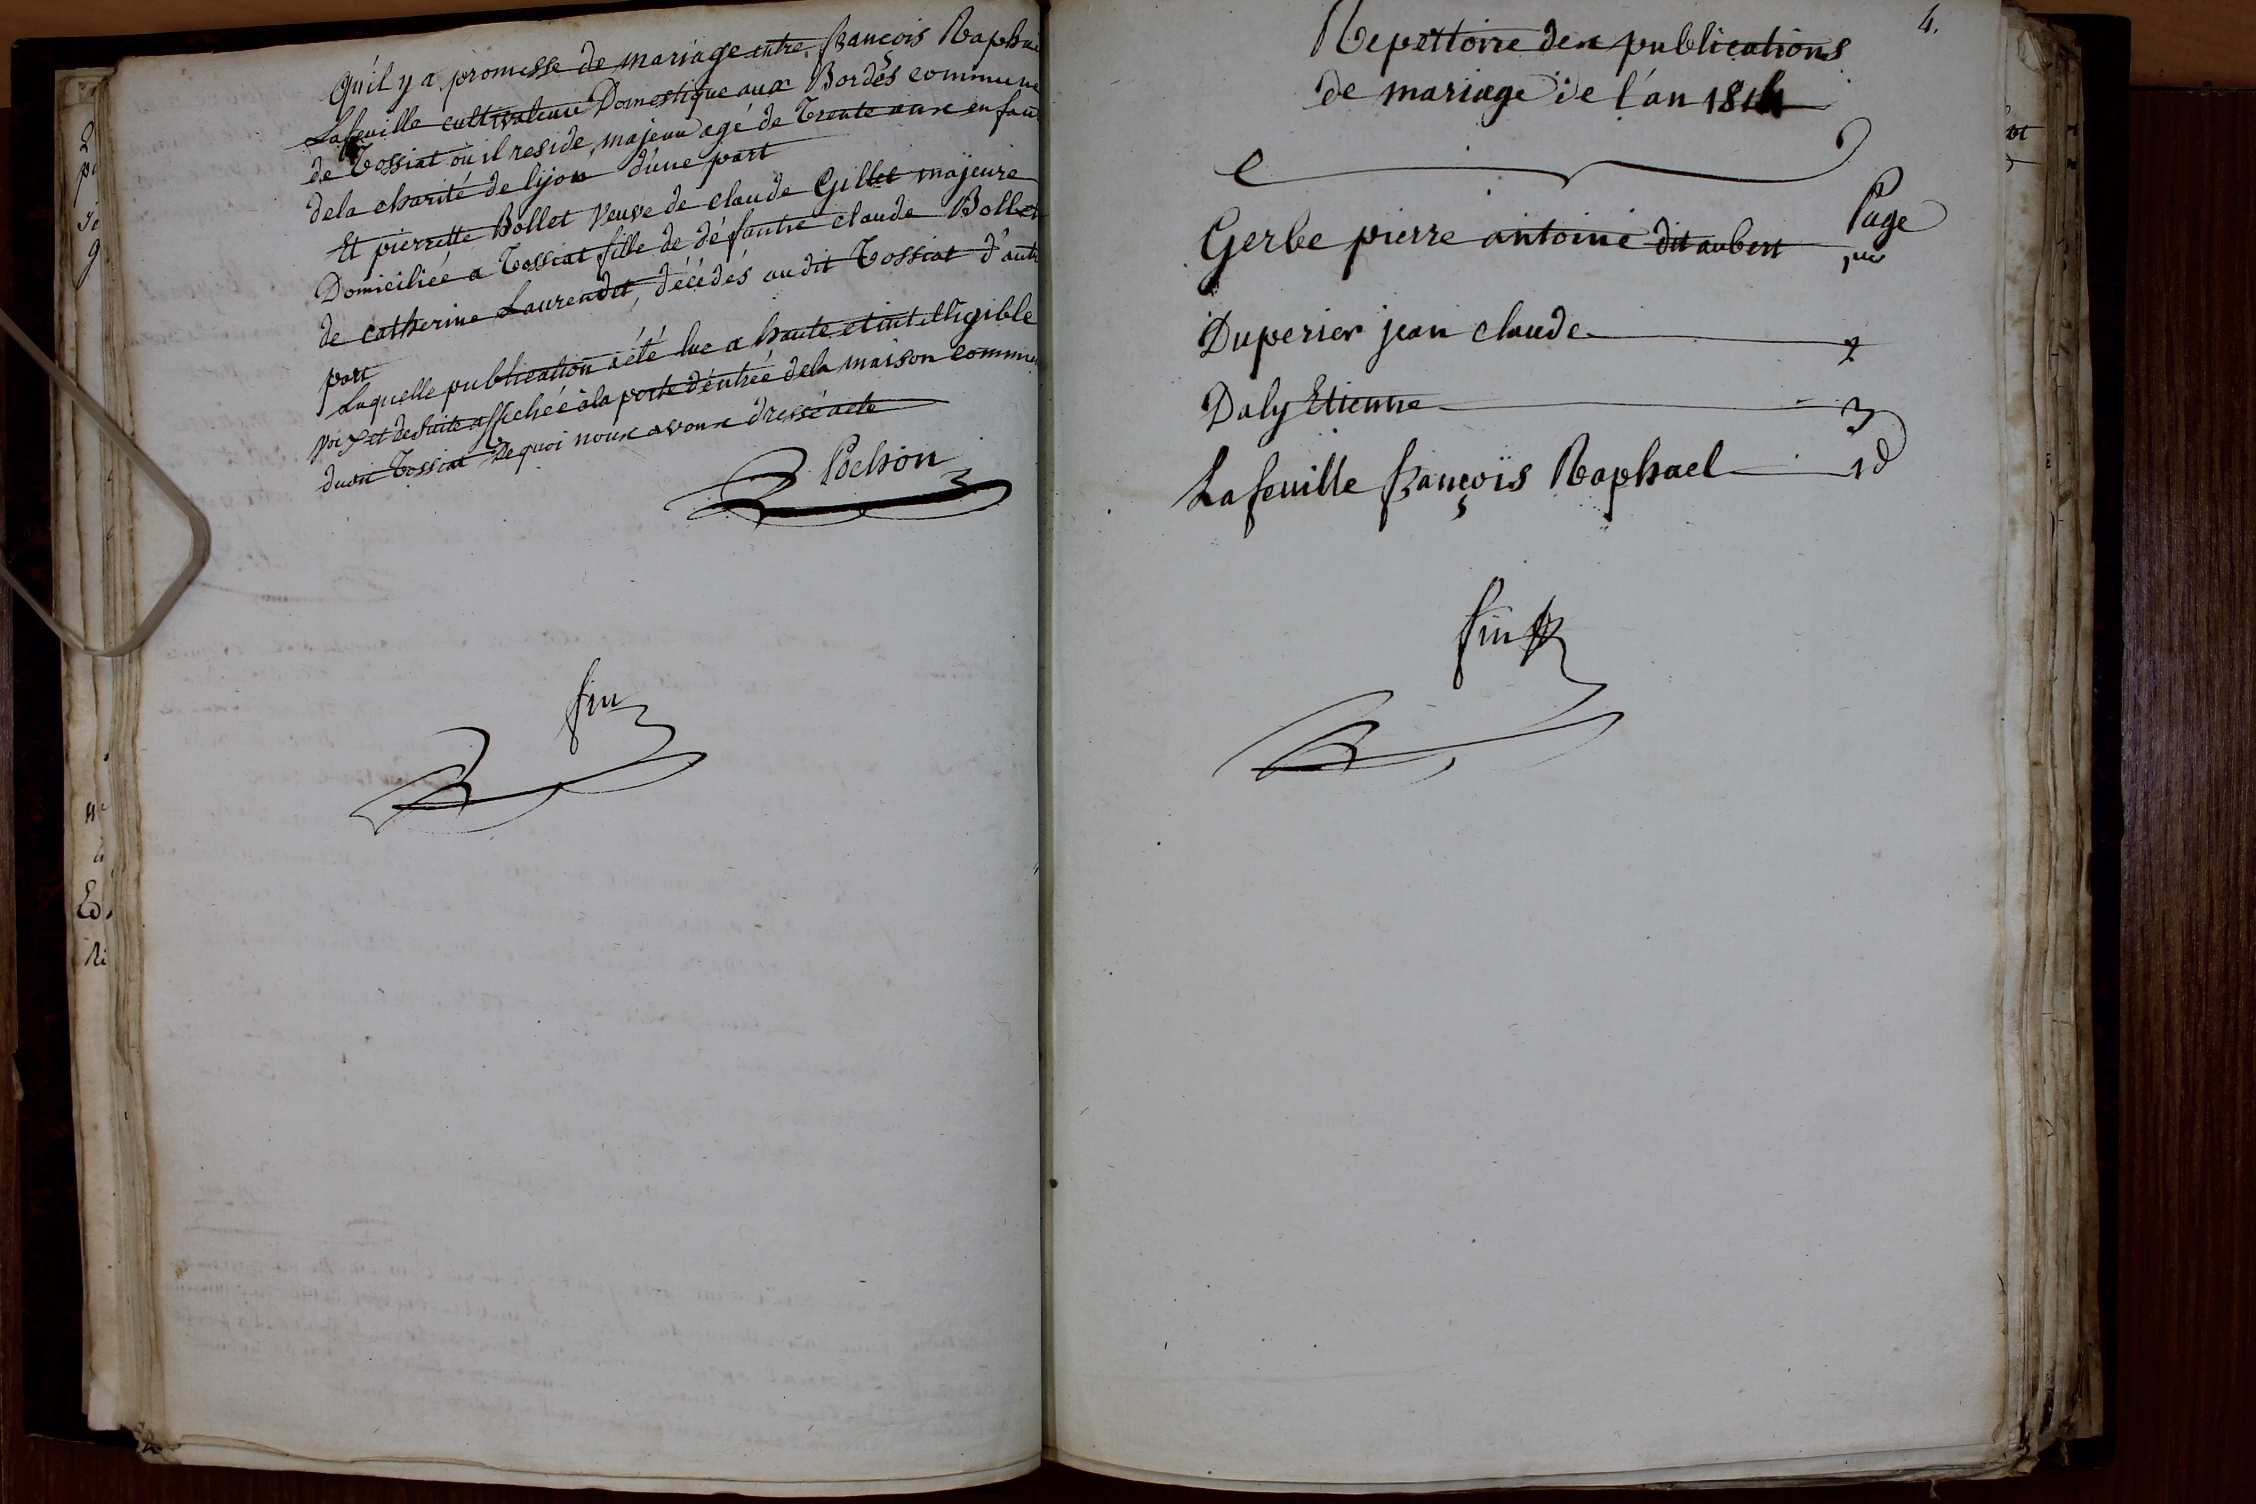 qu'il y a promesse de mariage entre françois Raphael
Lafeuille cultivateur Domestique aux Bordes commune
de Tossiat où il reside, majeur agé de Trente ans enfant
dela charité de lyon d'une part
Et pierrette Bollet Veuve de claude Gillet majeure
Domiciliée a Tossiat fille de défautre claude Bollet
de catherine Laurendet, décédés audit Tossiat d'autre
part
Laquelle publication a été lue a haute et intelligible
voix et desuite affichée à la porte d'entrée dela maison commune
dudit Tossiat De quoi nous avons dressé acte
Pochon
fin
4.
Repettoire des publications
de mariage de l'an 1814
Page
Gerbe pierre antoine dit aubert
Duperier jean claude 2
Daly Etienne 3
Lafeuille françois Raphael id
fin